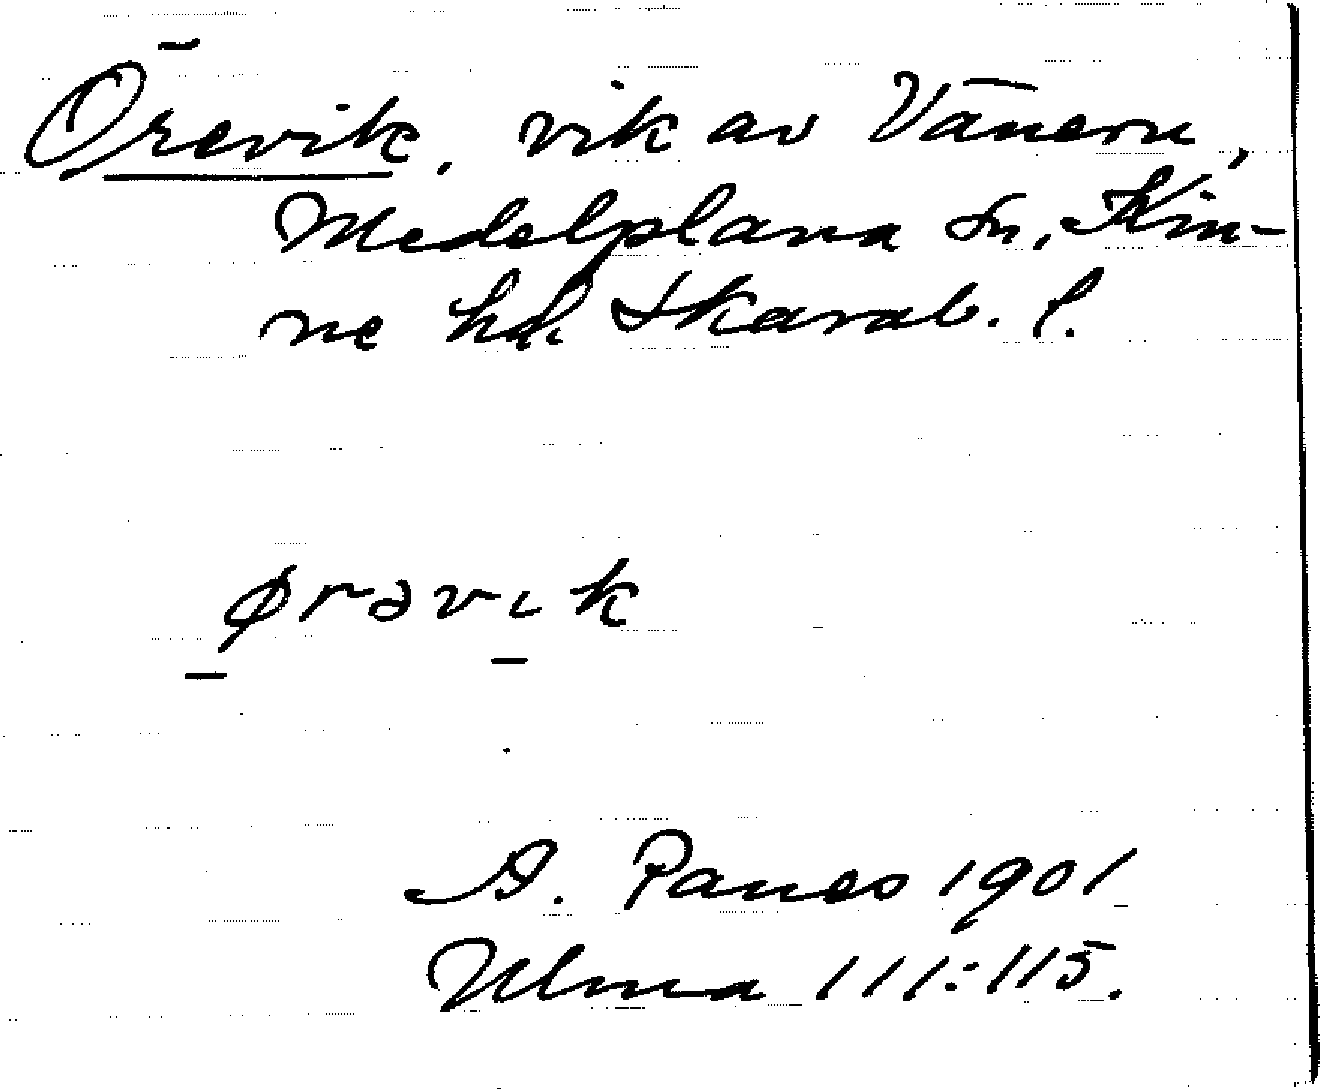 Örevik, vik av Vänern,
Medelplana sn, Kin-
ne hd. Skarab. l.
ørəvık
A. Panes 1901
Ulma 111:115.